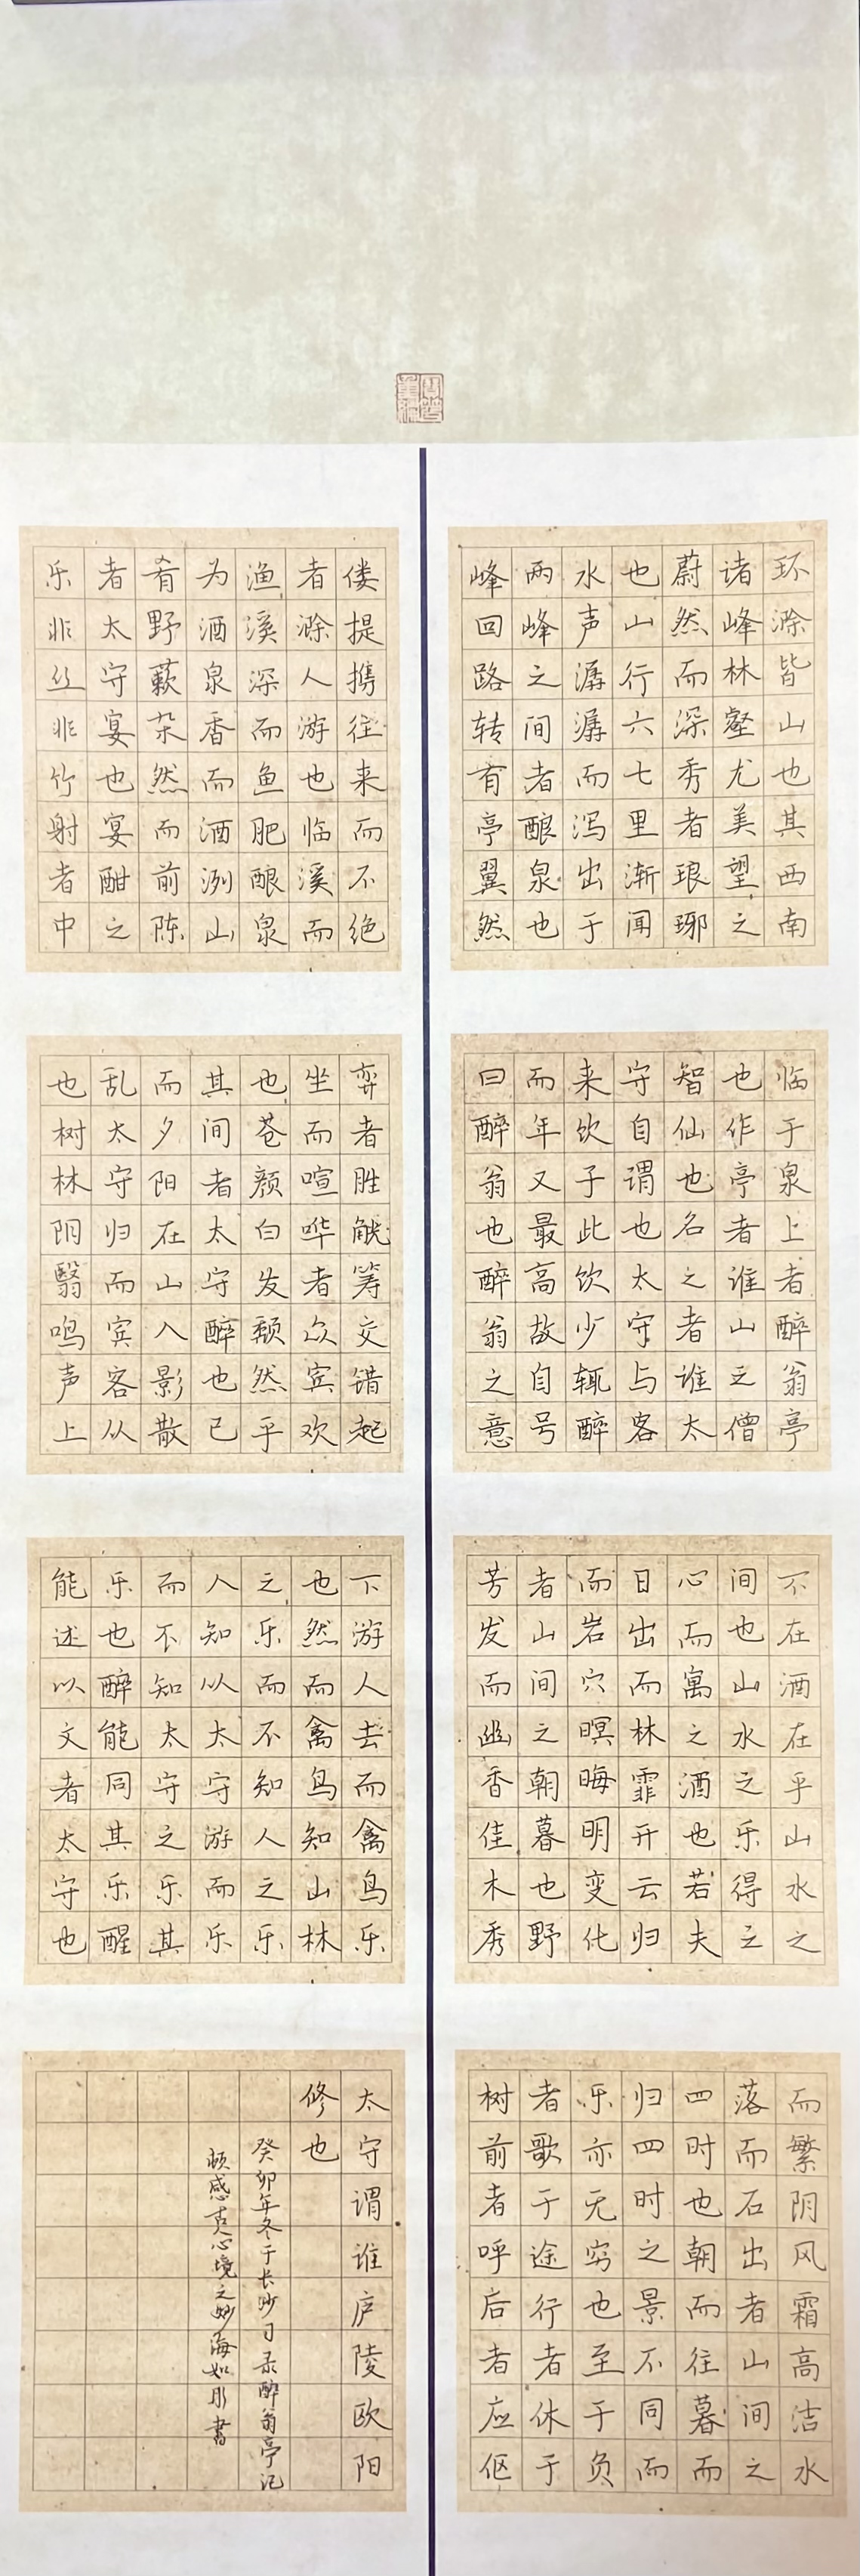 环滁皆山也其西南
诸峰林壑尤美望之
蔚然而深秀者琅琊
也山行六七里渐闻
水声潺潺而泻出于
两峰之间者酿泉也
峰回路转有亭翼然
临于泉上者醉翁亭
也作亭者谁山之僧
智仙也名之者谁太
守自谓也太守与客
来饮于此饮少辄醉
而年又最高故自号
曰醉翁也醉翁之意
不在酒在乎山水之
间也山水之乐得之
心而寓之酒也若夫
日出而林霏开云归
而岩穴暝晦明变化
者山间之朝暮也野
芳发而幽香佳木秀
而繁阴风霜高洁水
落而石出者山间之
四时也朝而往暮而
归四时之景不同而
乐亦无穷也至于负
者歌于途行者休于
树前者呼后者应伛
偻提携往来而不绝
者滁人游也临溪而
渔溪深而鱼肥酿泉
为酒泉香而酒洌山
肴野蔌杂然而前陈
者太守宴也宴酣之
乐非丝非竹射者中
弈者胜觥筹交错起
坐而喧哗者众宾欢
也苍颜白发颓然乎
其间者太守醉也已
而夕阳在山人影散
乱太守归而宾客从
也树林阴翳鸣声上
下游人去而禽鸟乐
也然而禽鸟知山林
之乐而不知人之乐
人知以太守游而乐
而不知太守之乐其
乐也醉能同其乐醒
能述以文者太守也
太守谓谁庐陵欧阳
修也
癸卯年冬于长沙习录醉翁亭记
顿感其心境之妙海如彤書